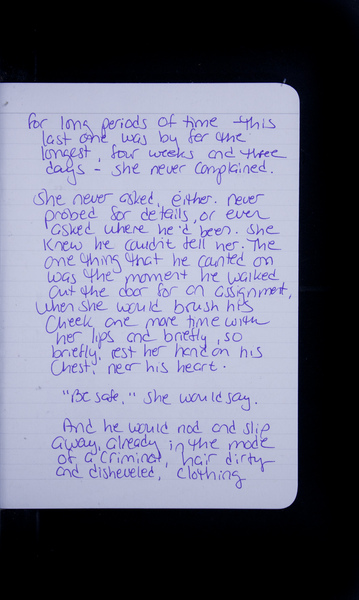 for long periods of time this
last one was by far the
longest, four weeks and three
days - she never complained.
She never asked, either. never
probed for details, or even
asked where he'd been. She
knew he couldn't tell her. The
one thing that he counted on
was the moment he walked
out the door for an assignment,
when she would brush his
cheek one more time with
her lips and briefly, so
briefly, rest her hand on his
chest, near his heart.
"Be safe," she would say.
And he would nod and slip
away, already in the mode
of a criminal, hair dirty
and disheveled, clothing